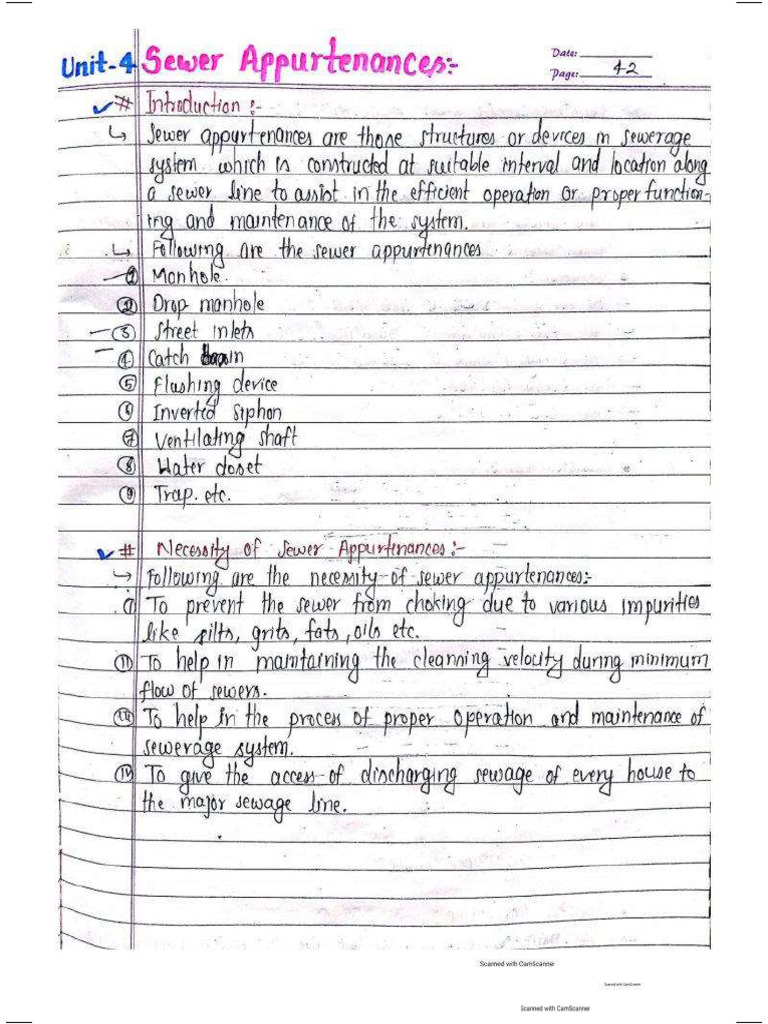 Unit-4 Sewer Appurtenances:-
Date:
Page: 42
# Introduction :-
↳ Sewer appurtenances are those structures or devices in sewerage
system which is constructed at suitable interval and location along
a sewer line to assist in the efficient operation or proper function-
ing and maintenance of the system.
↳ Following are the sewer appurtenances
① Manhole.
② Drop manhole
③ Street inlets
④ Catch basin
⑤ Flushing device
⑥ Inverted Siphon
⑦ Ventilating shaft
⑧ Water closet
⑨ Trap. etc.
# Necessity of Sewer Appurtenances:-
↳ Following are the necessity of sewer appurtenances:-
(i) To prevent the sewer from choking due to various impurities
like silts, grits, fats, oils etc.
(ii) To help in maintaining the cleanning velocity during minimum
flow of sewers.
(iii) To help in the process of proper operation and maintenance of
sewerage system.
(iv) To give the access of discharging sewage of every house to
the major sewage line.
Scanned with CamScanner
Scanned with CamScanner
Scanned with CamScanner